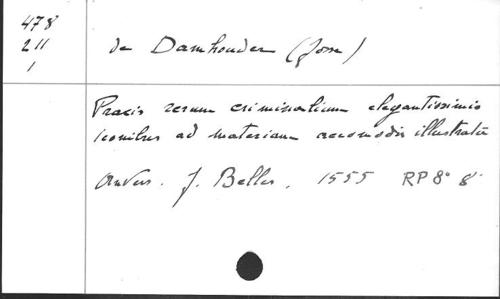 478
211
1
de Damhouder (Josse)
Praxis rerum criminalium elegantissimis
iconibus ad materiam accomodis illustrata
Anvers. J. Beller, 1555 RP 8° 8